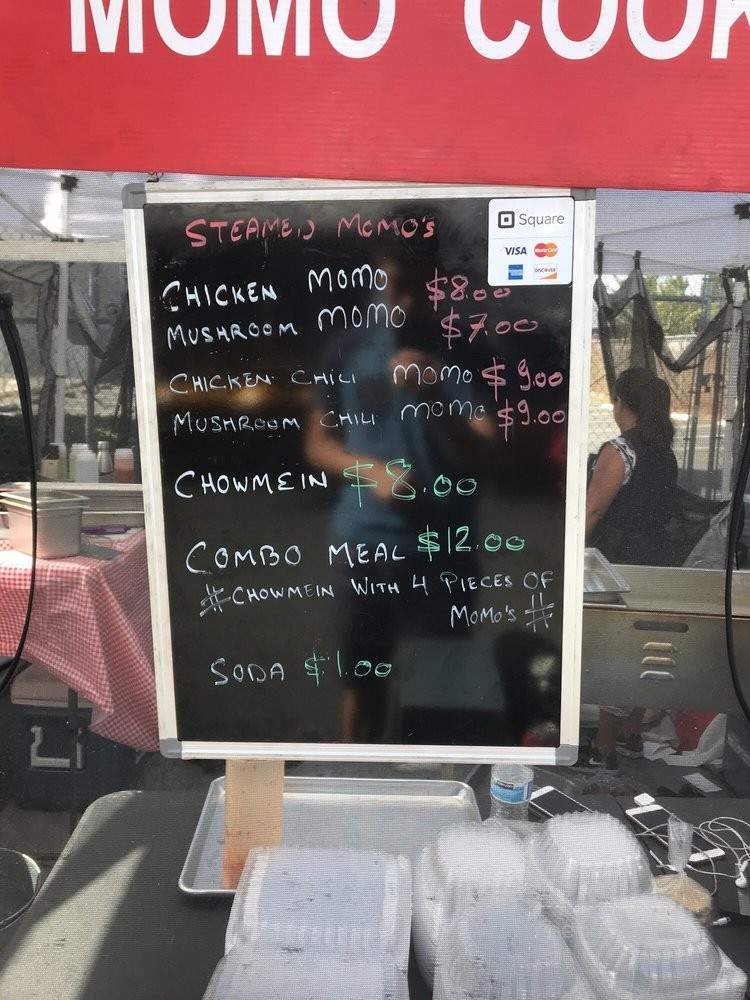 MOMO COOK
Square
VISA MasterCard
DISCOVER
STEAMED MOMO'S
CHICKEN MOMO $8.00
MUSHROOM MOMO $7.00
CHICKEN CHILI MOMO $9.00
MUSHROOM CHILI MOMO $9.00
CHOWMEIN $8.00
COMBO MEAL $12.00
# CHOWMEIN WITH 4 PIECES OF
MOMO'S #
SODA $1.00